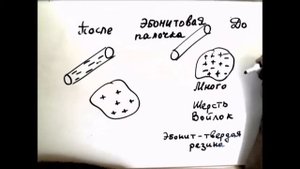 После ЭБОНИТОВАЯ До
палочка
Много
Шерсть
Войлок
Эбонит-твердая
резина